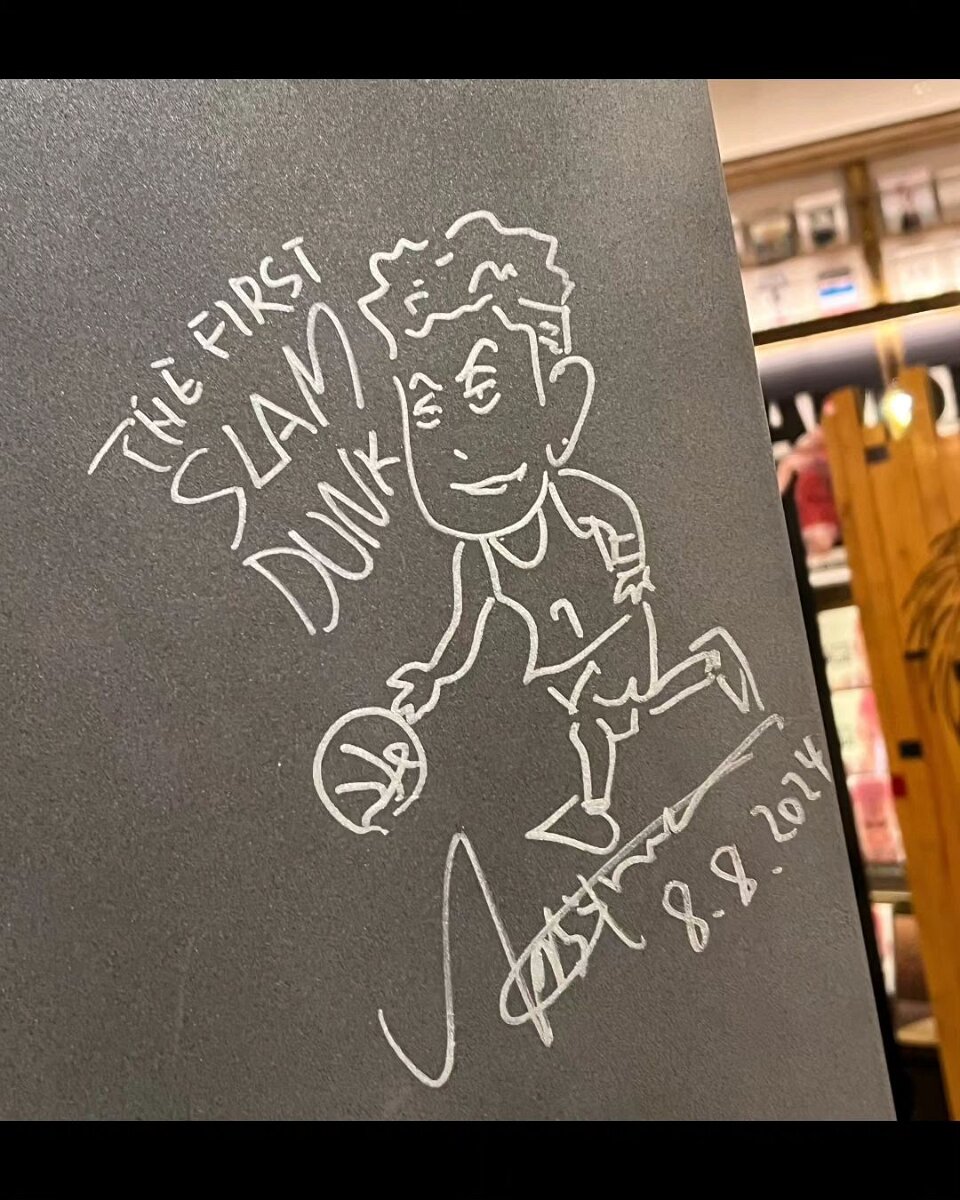 THE FIRST
SLAM
DUNK
7
8.8.2024